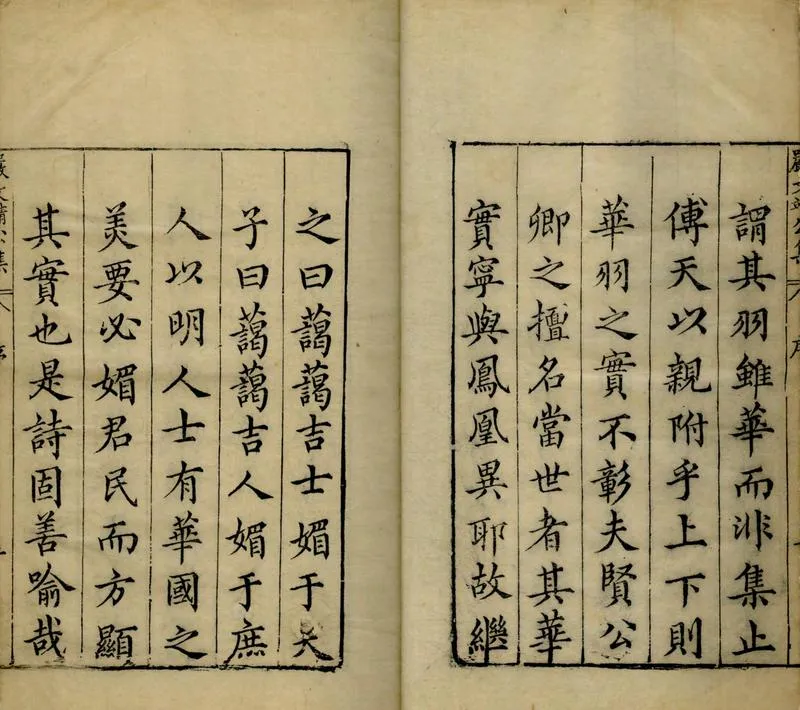 嚴文靖公集 序
謂其羽雖華而非集止
傅天以親附乎上下則
華羽之實不彰夫賢公
卿之擅名當世者其華
實寧與鳳凰異耶故繼
之曰藹藹吉士媚于天
子曰藹藹吉人媚于庶
人以明人士有華國之
美要必媚君民而方顯
其實也是詩固善喻哉
嚴文靖公集 序